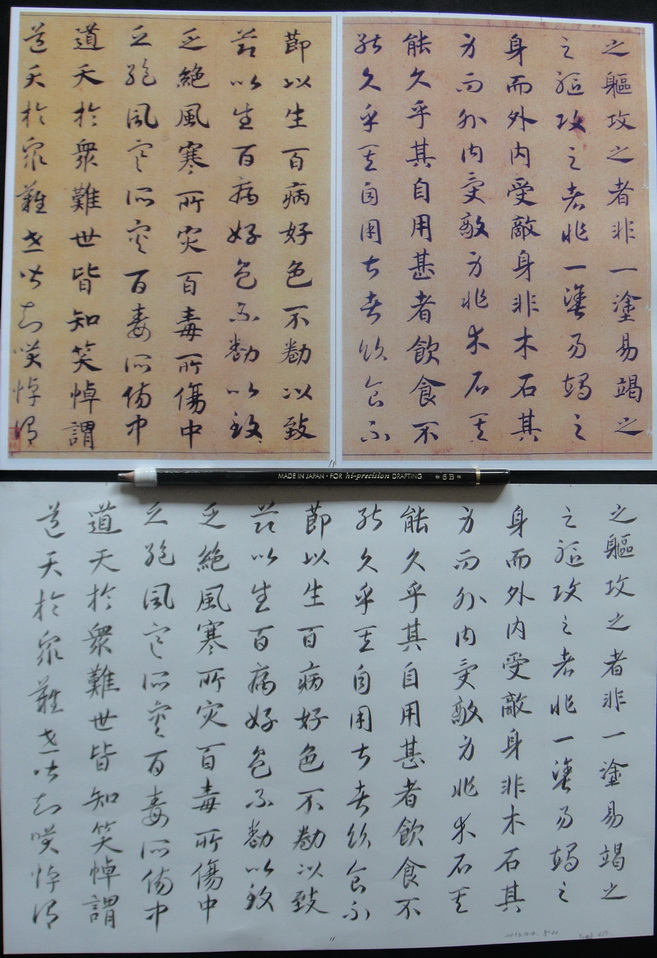 之軀攻之者非一塗易竭之
之軀攻之者非一塗易竭之
身而外內受敵身非木石其
身而外內受敵身非木石其
能久乎其自用甚者飲食不
能久乎其自用甚者飲食不
節以生百病好色不勌以致
節以生百病好色不勌以致
乏絕風寒所災百毒所傷中
乏絕風寒所災百毒所傷中
道夭於眾難世皆知笑悼謂
道夭於眾難世皆知笑悼謂
MADE IN JAPAN • FOR hi-precision DRAFTING "6B"
之軀攻之者非一塗易竭之
之軀攻之者非一塗易竭之
身而外內受敵身非木石其
身而外內受敵身非木石其
能久乎其自用甚者飲食不
能久乎其自用甚者飲食不
節以生百病好色不勌以致
節以生百病好色不勌以致
乏絕風寒所災百毒所傷中
乏絕風寒所災百毒所傷中
道夭於眾難世皆知笑悼謂
道夭於眾難世皆知笑悼謂